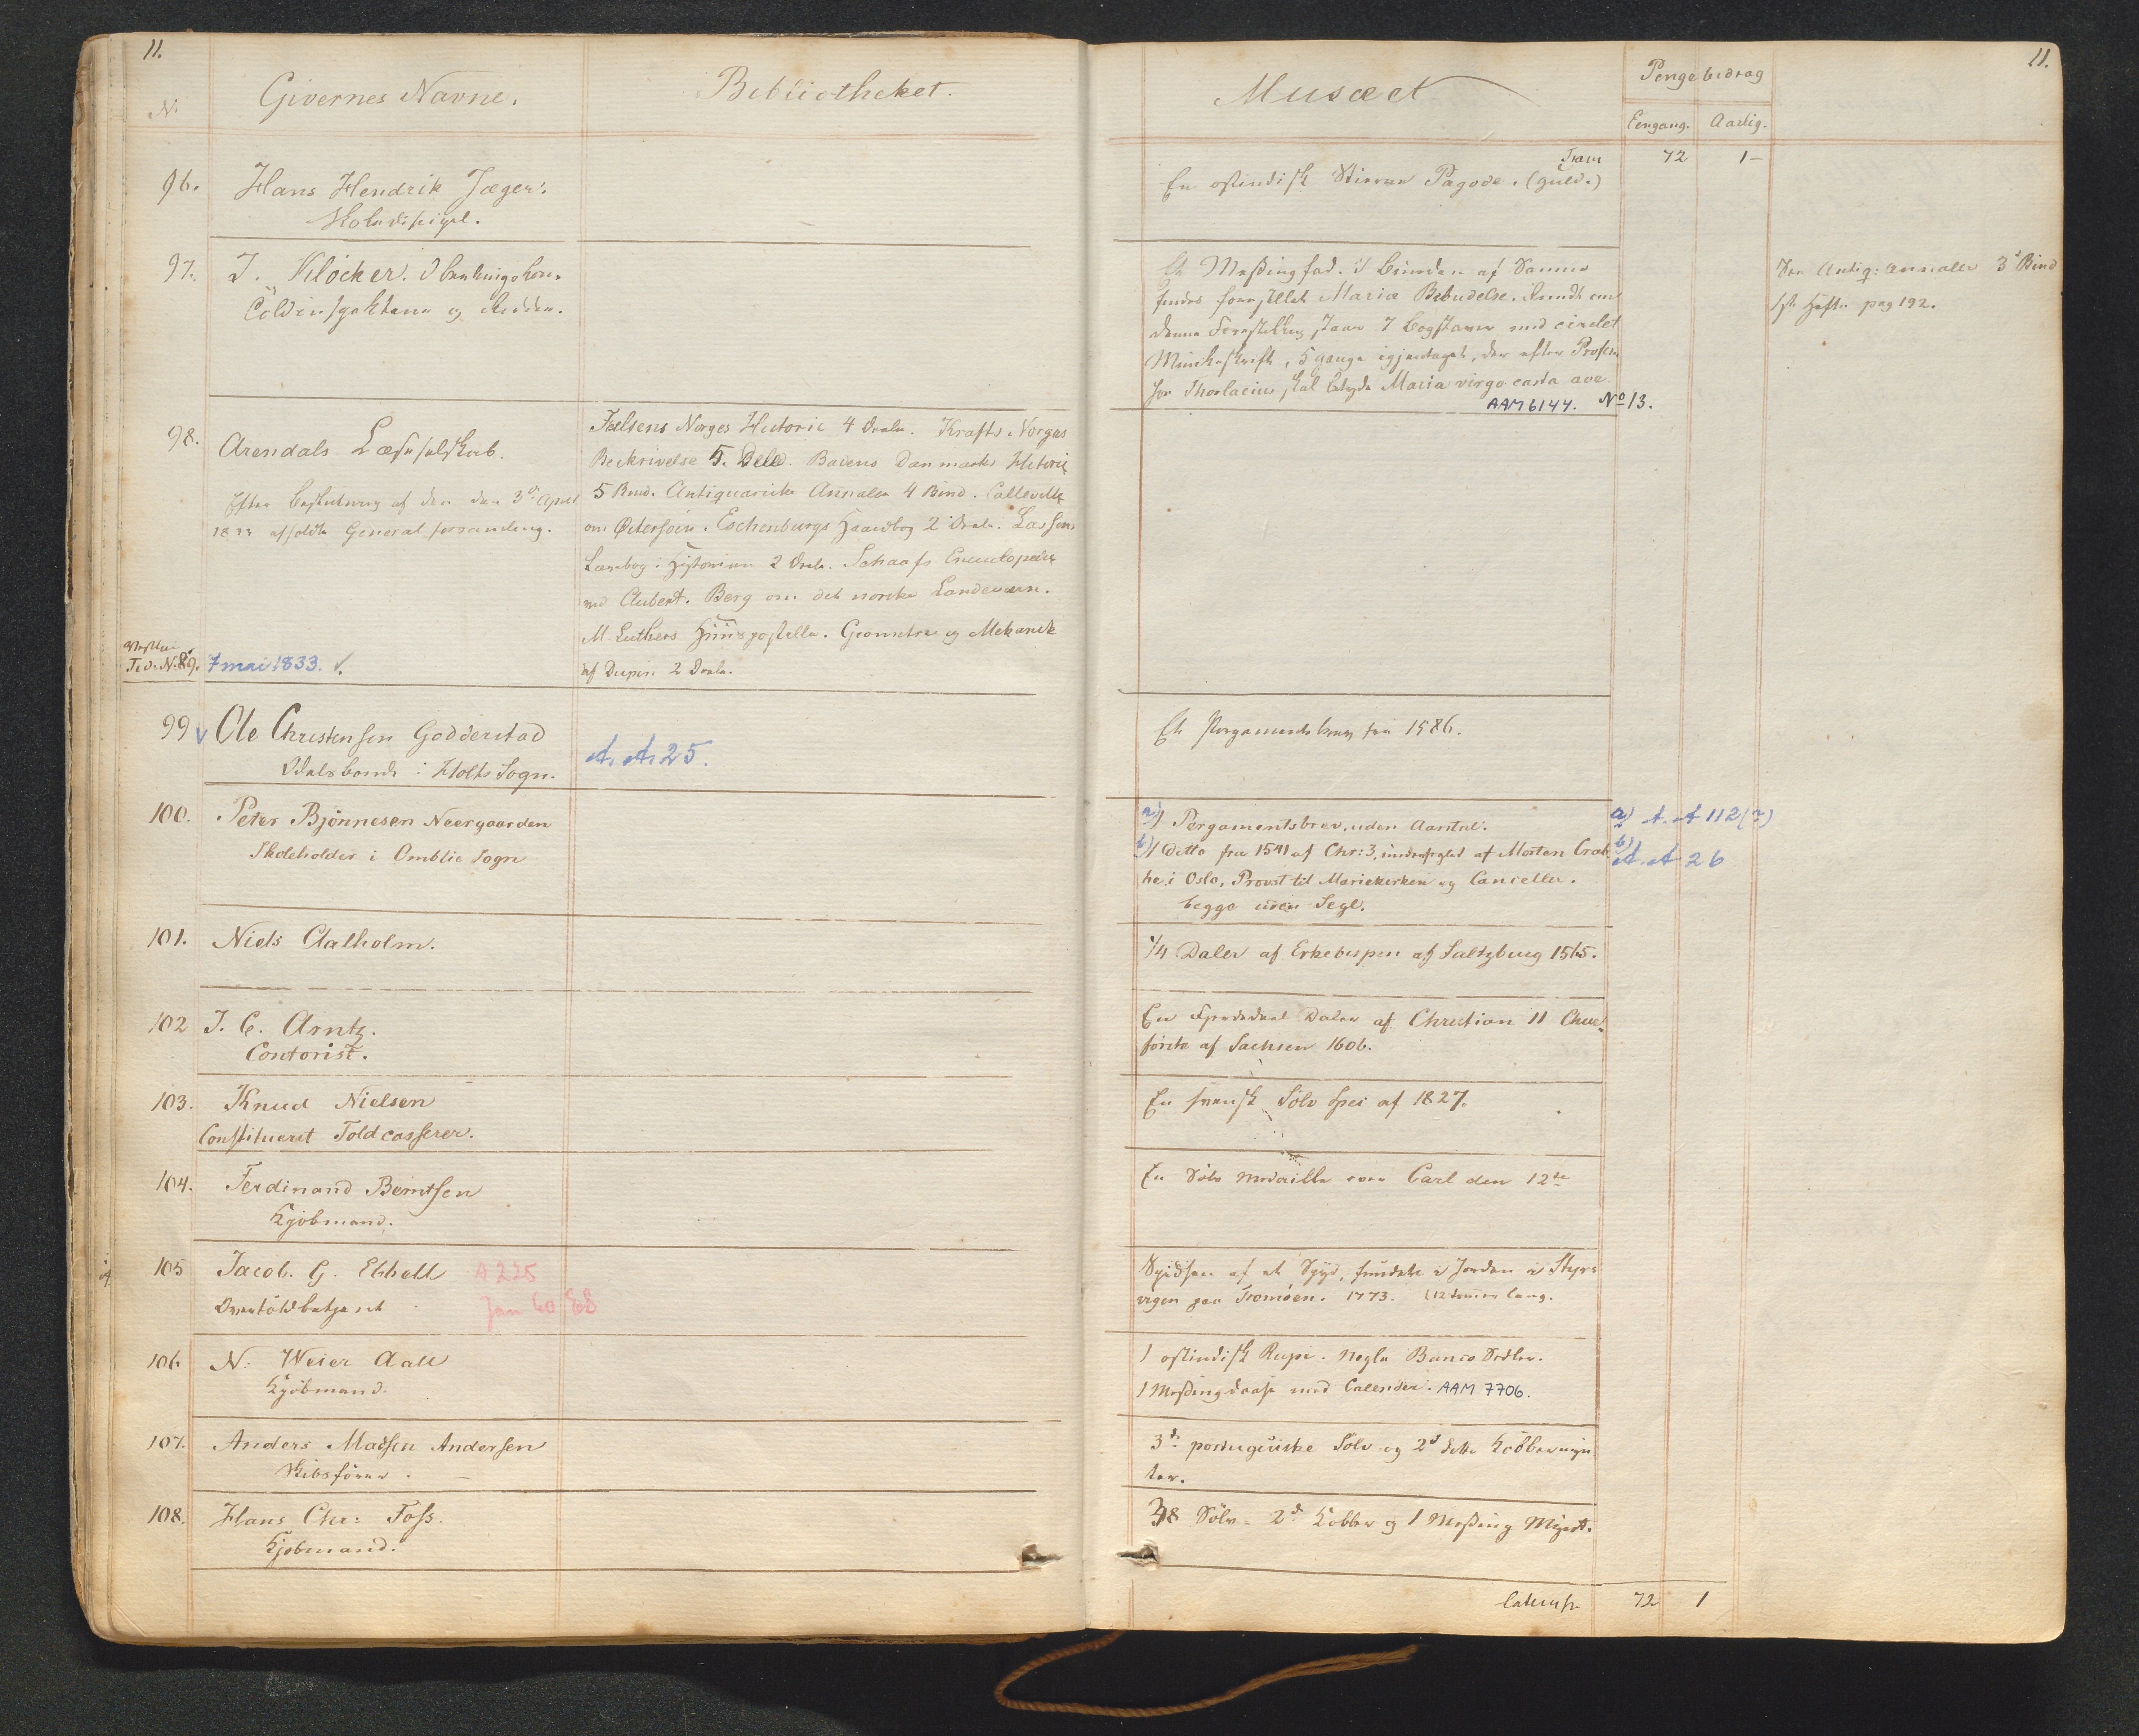 11.
N.
Givernes Navne.
Bibliotheket.
Musæet
Pengebidrag
Eengang.
Aarlig.
11.
96.
Hans Hendrik Jæger.
Skoledisipel.
Een
En ostindisk Stierne Pagode. (Guld.)
72
1-
97.
J. Klöcker.
og Ridder.
Et Messingfad. I Bunden af Samme
findes forestillet Mariæ Bebudelse. Rundt om
denne Forestilling staar 7 Bogstaver med cirelet
Munkeskrift, 5 gange igjentaget, der efter Profes
sor Thorlacius skal betyde Maria virgo casta ave.
AAM 6144. No 13.
See Antiq: Annaler 3d Bind
1ste Hefte pag 192.
98.
Arendals Læseselskab.
Efter Beslutning af den den 3die April
1833 afholdte General forsamling.
Vestlan
Tid. N. 89.
7 mai 1833.
Falsens Norges Historie 4 Dele. Krafts Norges
Beskrivelse 5. Dele. Badens Danmarks Historie
5 Bind. Antiquariske Annaler 4 Bind. Catteville
om Østersøen. Eschenburgs Haandbog 2 Dele. Lassens
Lærebog i Historien 2 Dele. Schaafs Encyclopædie
ved Aubert. Berg om det norske Landeværn.
M. Luthers Huuspostille. Geometrie og Mekanik
af Dupin 2 Dele.
99 v
Ole Christensen Godderstad
Odelsbonde i Holts Sogn.
A. A. 25.
Et Pergamentsbrev fra 1586.
100.
Peter Bjönnesen Neergaarden
Skoleholder i Omblie Sogn
a) 1 Pergamentsbrev, uden Aarstal.
b) 1 Ditto fra 1541 af Chr: 3, underseglet af Morten Crab
be i Oslo, Provst til Mariekirken og Canceller.
begge uden Segl.
a) A. A 112 (?)
b) A. A 26
101.
Niels Aalholm.
1/4 Daler af Erkebispen af Saltzburg 1565.
102
J. C. Arntz.
Contorist.
En Daler af Christian II Chur-
förste af Sachsen 1606.
103.
Knud Nielsen
Constitueret Toldcasserer.
En svensk Sölv Spec af 1827.
104.
Ferdinand Berntsen
Kjöbmand.
En Sölv Medaille over Carl den 12te
105
Jacob. G. Ebbell
Overtoldbetjent
A 225
Jan 60
Spidsen af et Spyd, fundet i Jorden i Styrs
vigen paa Tromöen. 1773. (12 Tommer lang.
106.
N: Weier Aall
Kjöbmand.
1 ostindisk Rupi. Nogle Banco Sedler.
1 Messingdaase med Calender. AAM 7706.
107.
Anders Madsen Andersen
Skibsförer.
3de portugisiske Sölv og 2de ditto Kobbermyn
ter.
108.
Hans Chr: Foss.
Kjöbmand.
38 Sölv- 2de Kobber og 1 Messing Mynt.
Latus
72
1